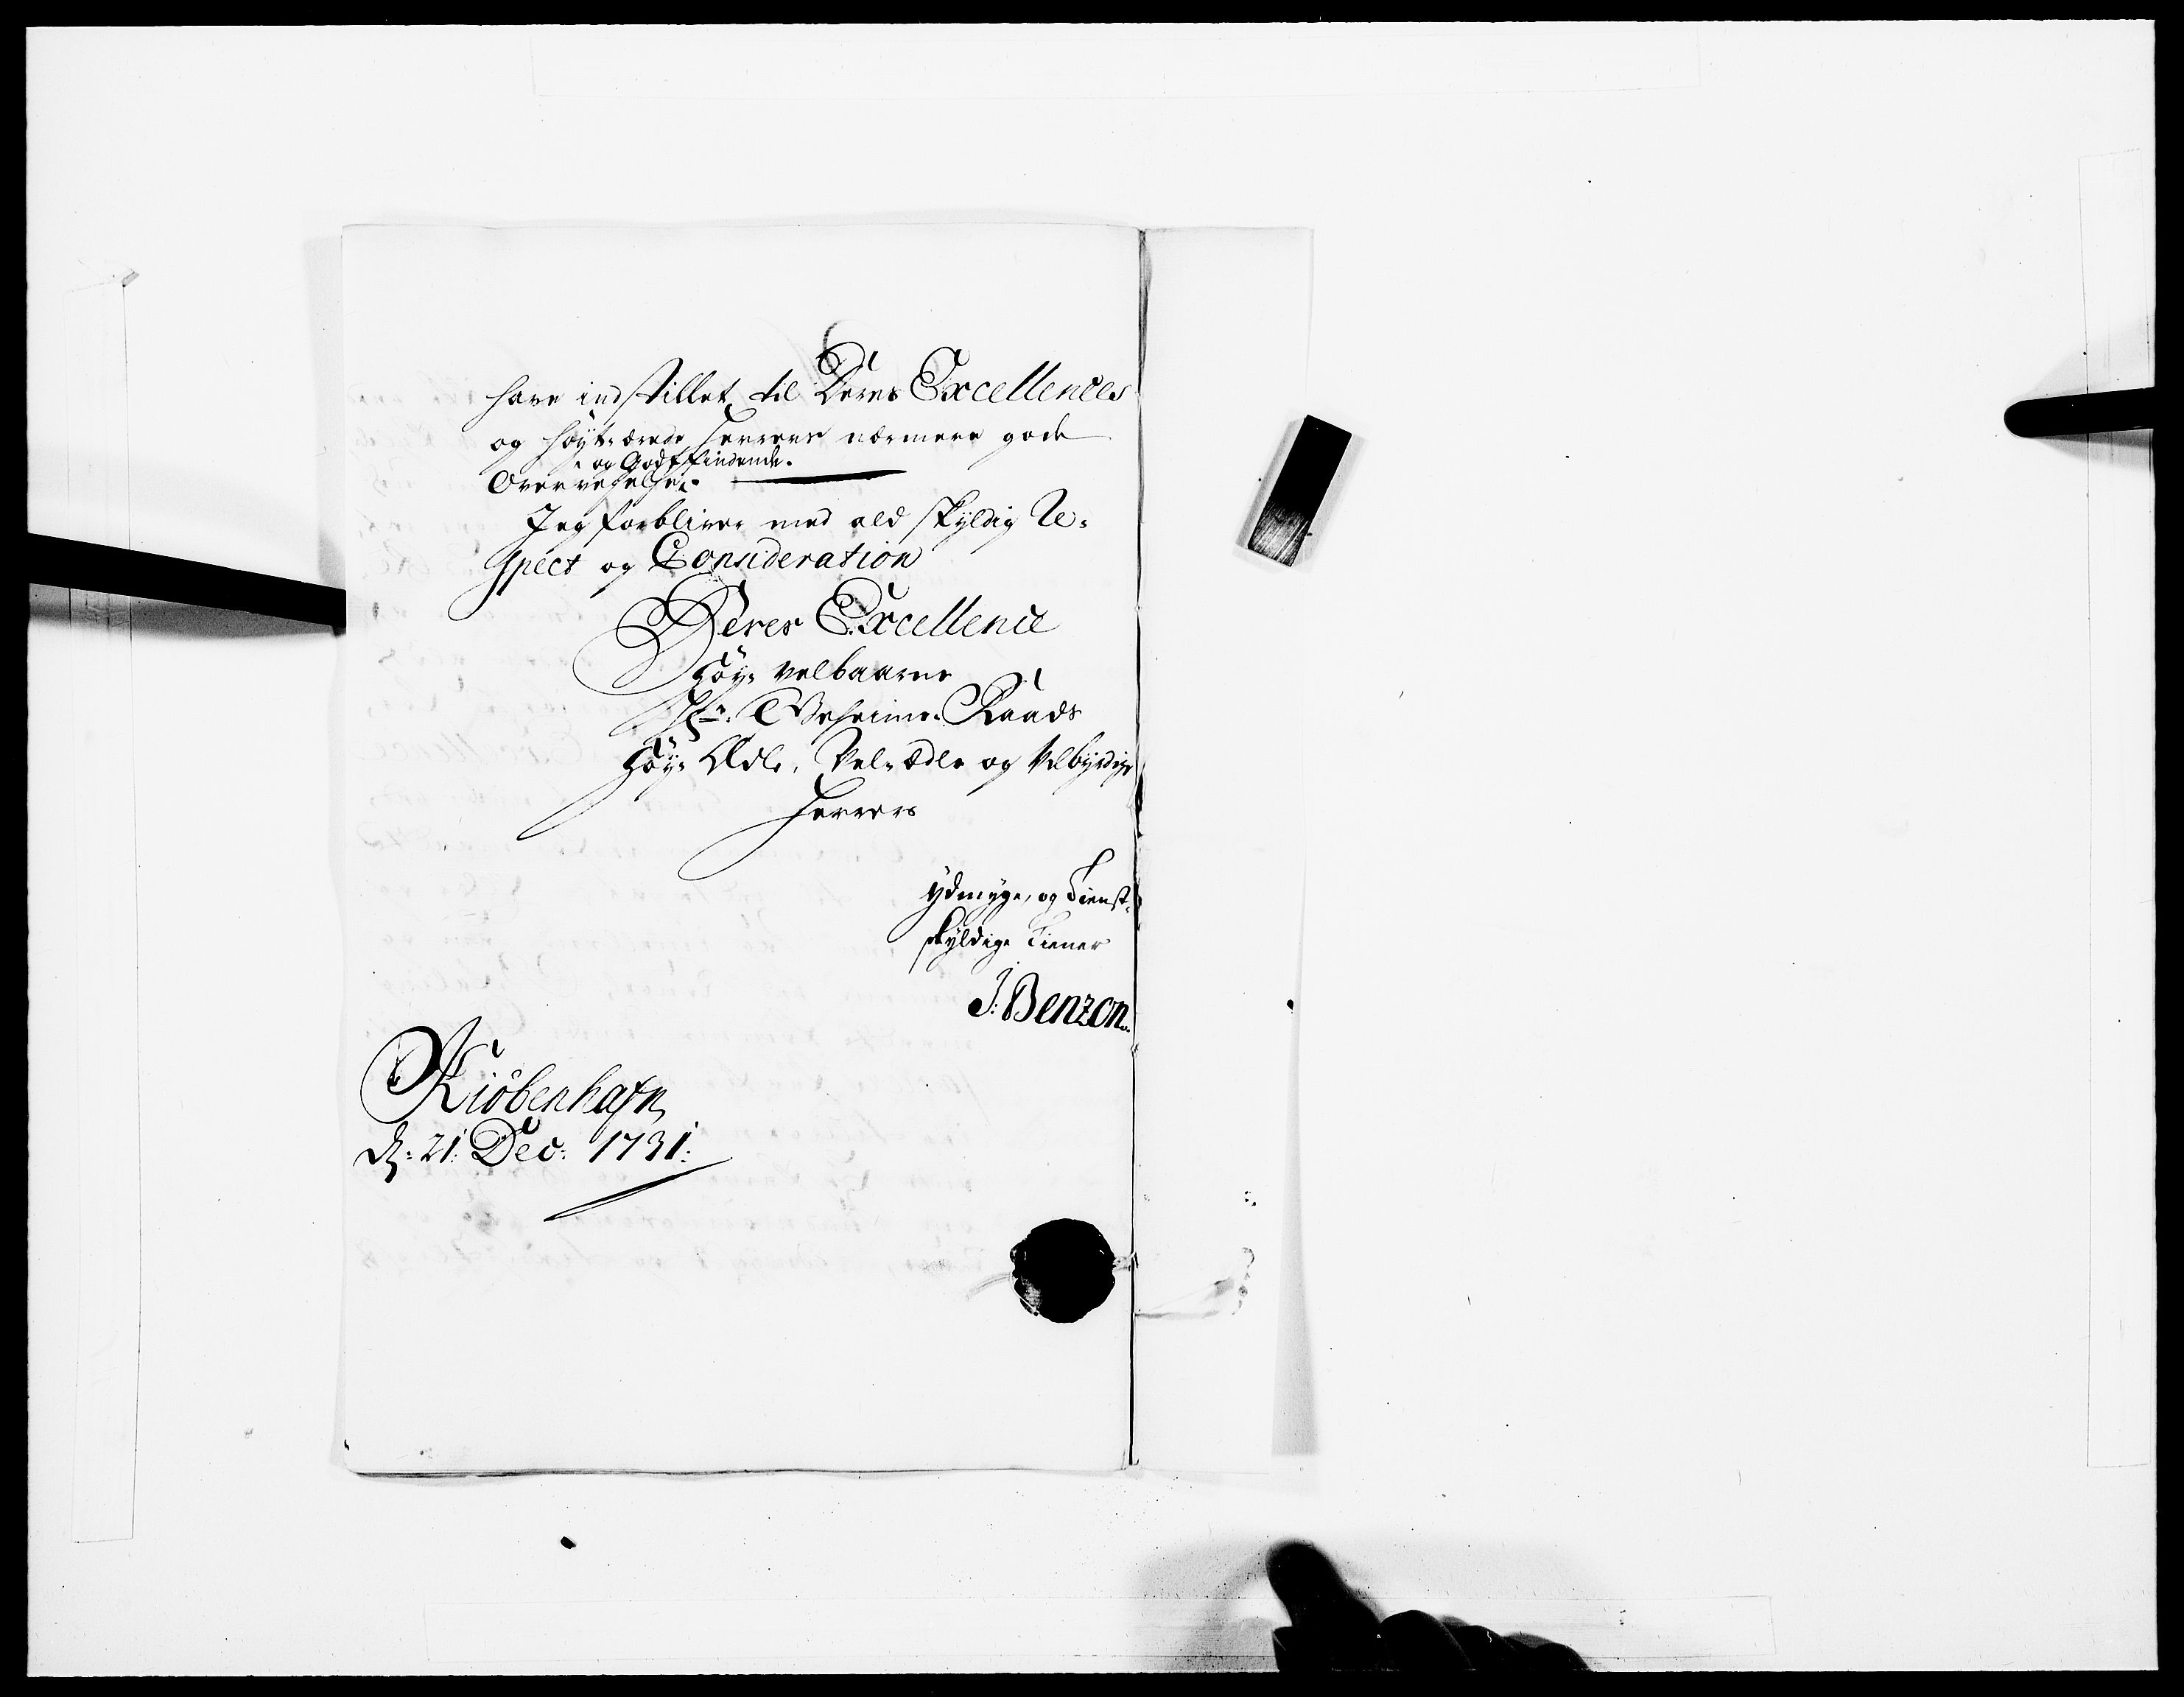 have indstillet til Deres Excellences
og høyt-ærede Herrers nærmere gode
og Godtfindende.
Overveyelse.
Jeg forbliver med ald skyldig Re-
spect og Consideration
Deres Excellence
Høy- velbaarne
Hr: Geheime- Raads
Høy- Ædle, Vel-ædle og Velbyrdige
Herrers
ydmyge, og Tienst-
skyldige Tiener
J: Benzon.
Kiöbenhafn
d: 21: Dec: 1731: